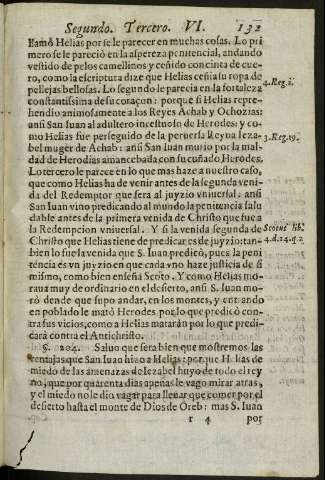 Segundo. Tercero. VI. 132
llamó Helias por se le parecer en muchas cosas. Lo pri
mero se le pareciò en la aspereza penitencial, andando
vestido de pelos camellinos y ceñido con cinta de cue-
ro, como la escriptura dize que Helias ceñia su ropa de
pellejas bellosas. Lo segundo le parecia en la fortaleza 4.Reg.1.
constantissima de su coraçon: porque si Helias repre-
hendio animosamente a los Reyes Achab y Ochozias:
ansi San Iuan al adultero incestuoso de Herodes: y co-
mo Helias fue perseguido de la peruersa Reyna Ieza- 3.Reg.19.
bel muger de Achab: ansi San Iuan murio por la mal-
dad de Herodias amancebada con su cuñado Herodes.
Lo tercero le parece en lo que mas haze a nuestro caso,
que como Helias ha de venir antes de la segunda veni-
da del Redemptor que sera al juyzio vniuersal, ansi
San Iuan vino predicando al mundo la penitencia salu
dable antes de la primera venida de Christo que fue a
la Redempcion vniuersal. Y si la venida segunda de Scotus lib.
Christo que Helias tiene de predicar es de juyzio: tan- 4.d.14.q.2.
bien lo fue la venida que S. Iuan predicò, pues la peni
tencia es vn juyzio en que cada vno haze justicia de si
mismo, como bien enseña Scoto. Y como Helias mo-
raua muy de ordinario en el desierto, ansi S. Iuan mo-
rò dende que supo andar, en los montes, y entrando
en poblado le matò Herodes por lo que predicò con-
tra sus vicios, como a Helias mataràn por lo que predi-
carà contra el Antichristo.
§. 202. Saluo que sera bien que mostremos las
ventajas que San Iuan hizo a Helias: porque Helias de
miedo de las amenazas de Iezabel huyo de todo el rey
no, que por quarenta dias apenas le vago mirar atras,
y el miedo no le dio vagar para llenar que comer por el
desierto hasta el monte de Dios de Oreb: mas S. Iuan
r 4 por